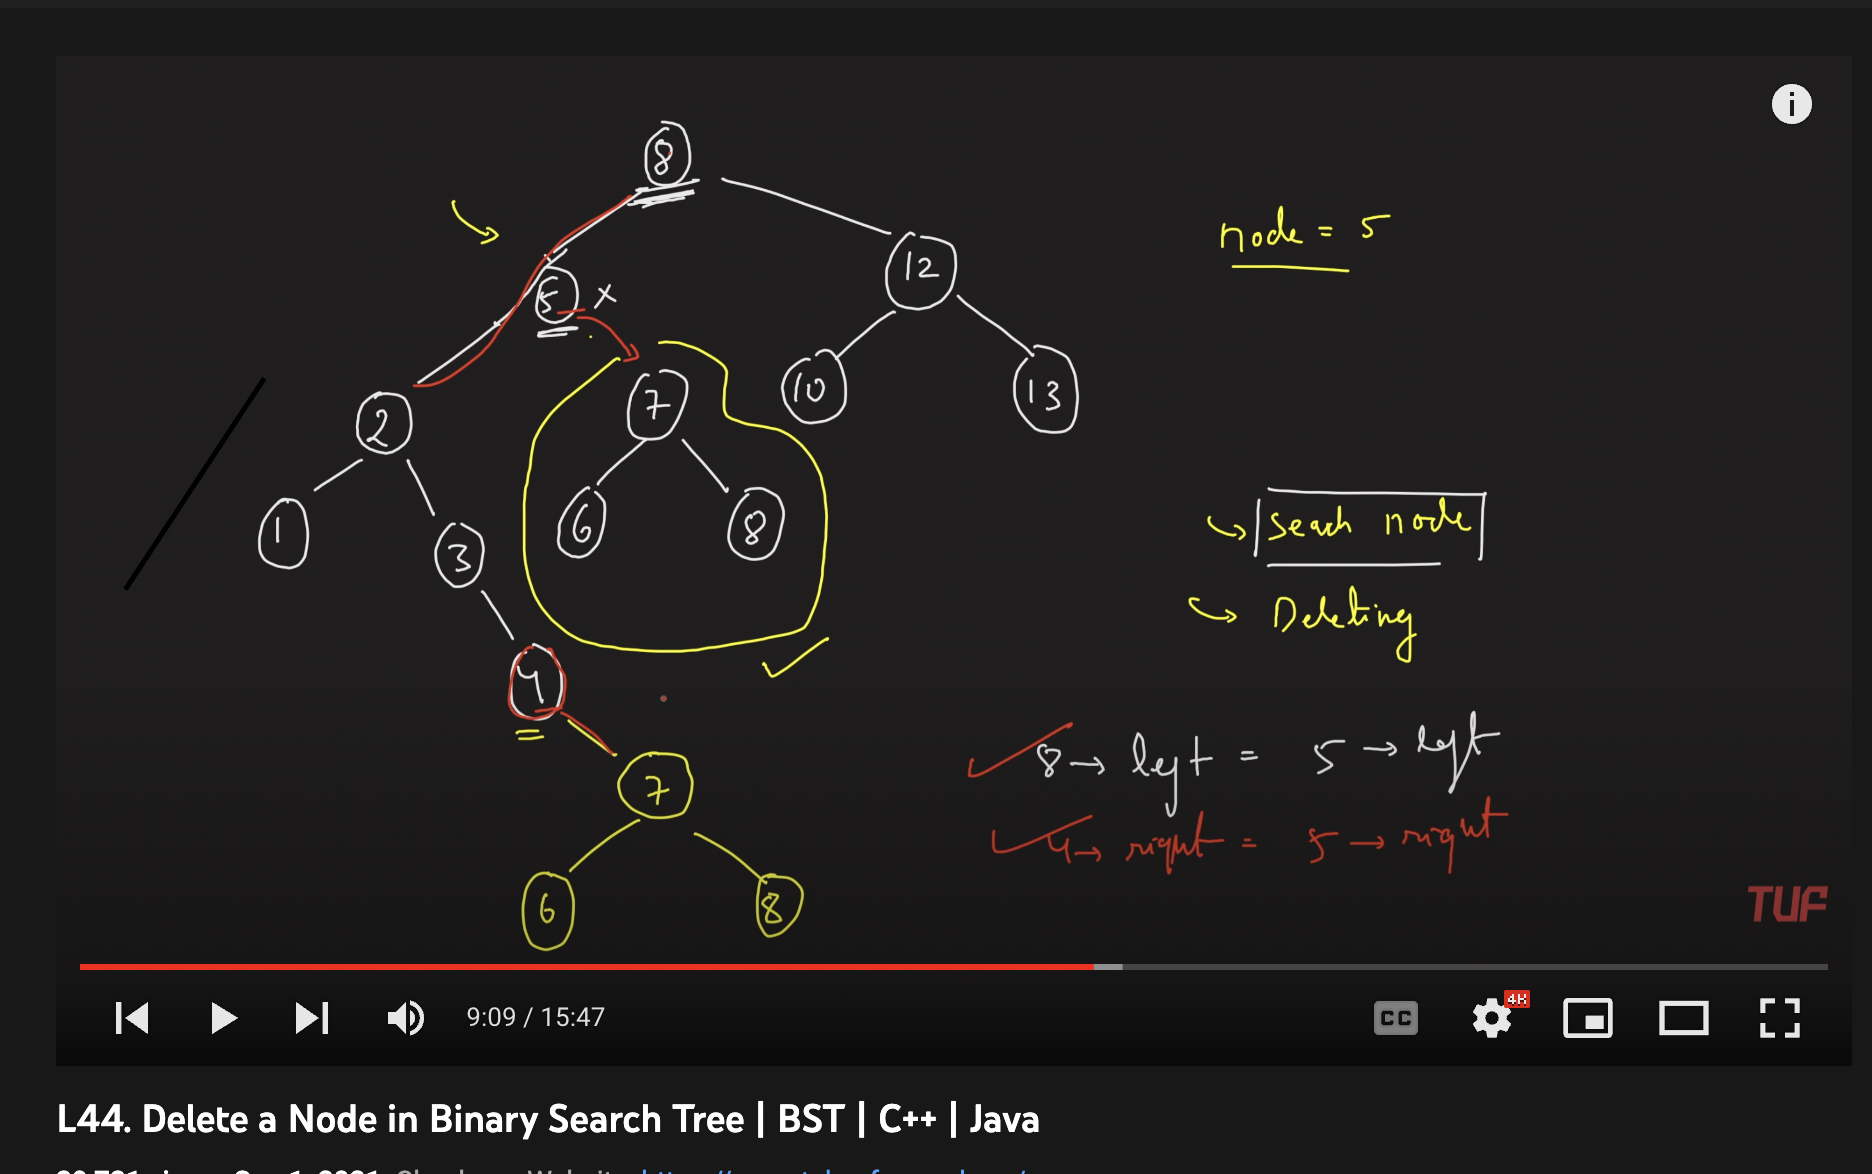 8
node = 5
12
5 x
7
10
13
2
6
8
1
3
Seach node
Deleting
4
8 → left = 5 → left
4 → right = 5 → right
7
6
8
TUF
9:09 / 15:47
CC
4K
L44. Delete a Node in Binary Search Tree | BST | C++ | Java